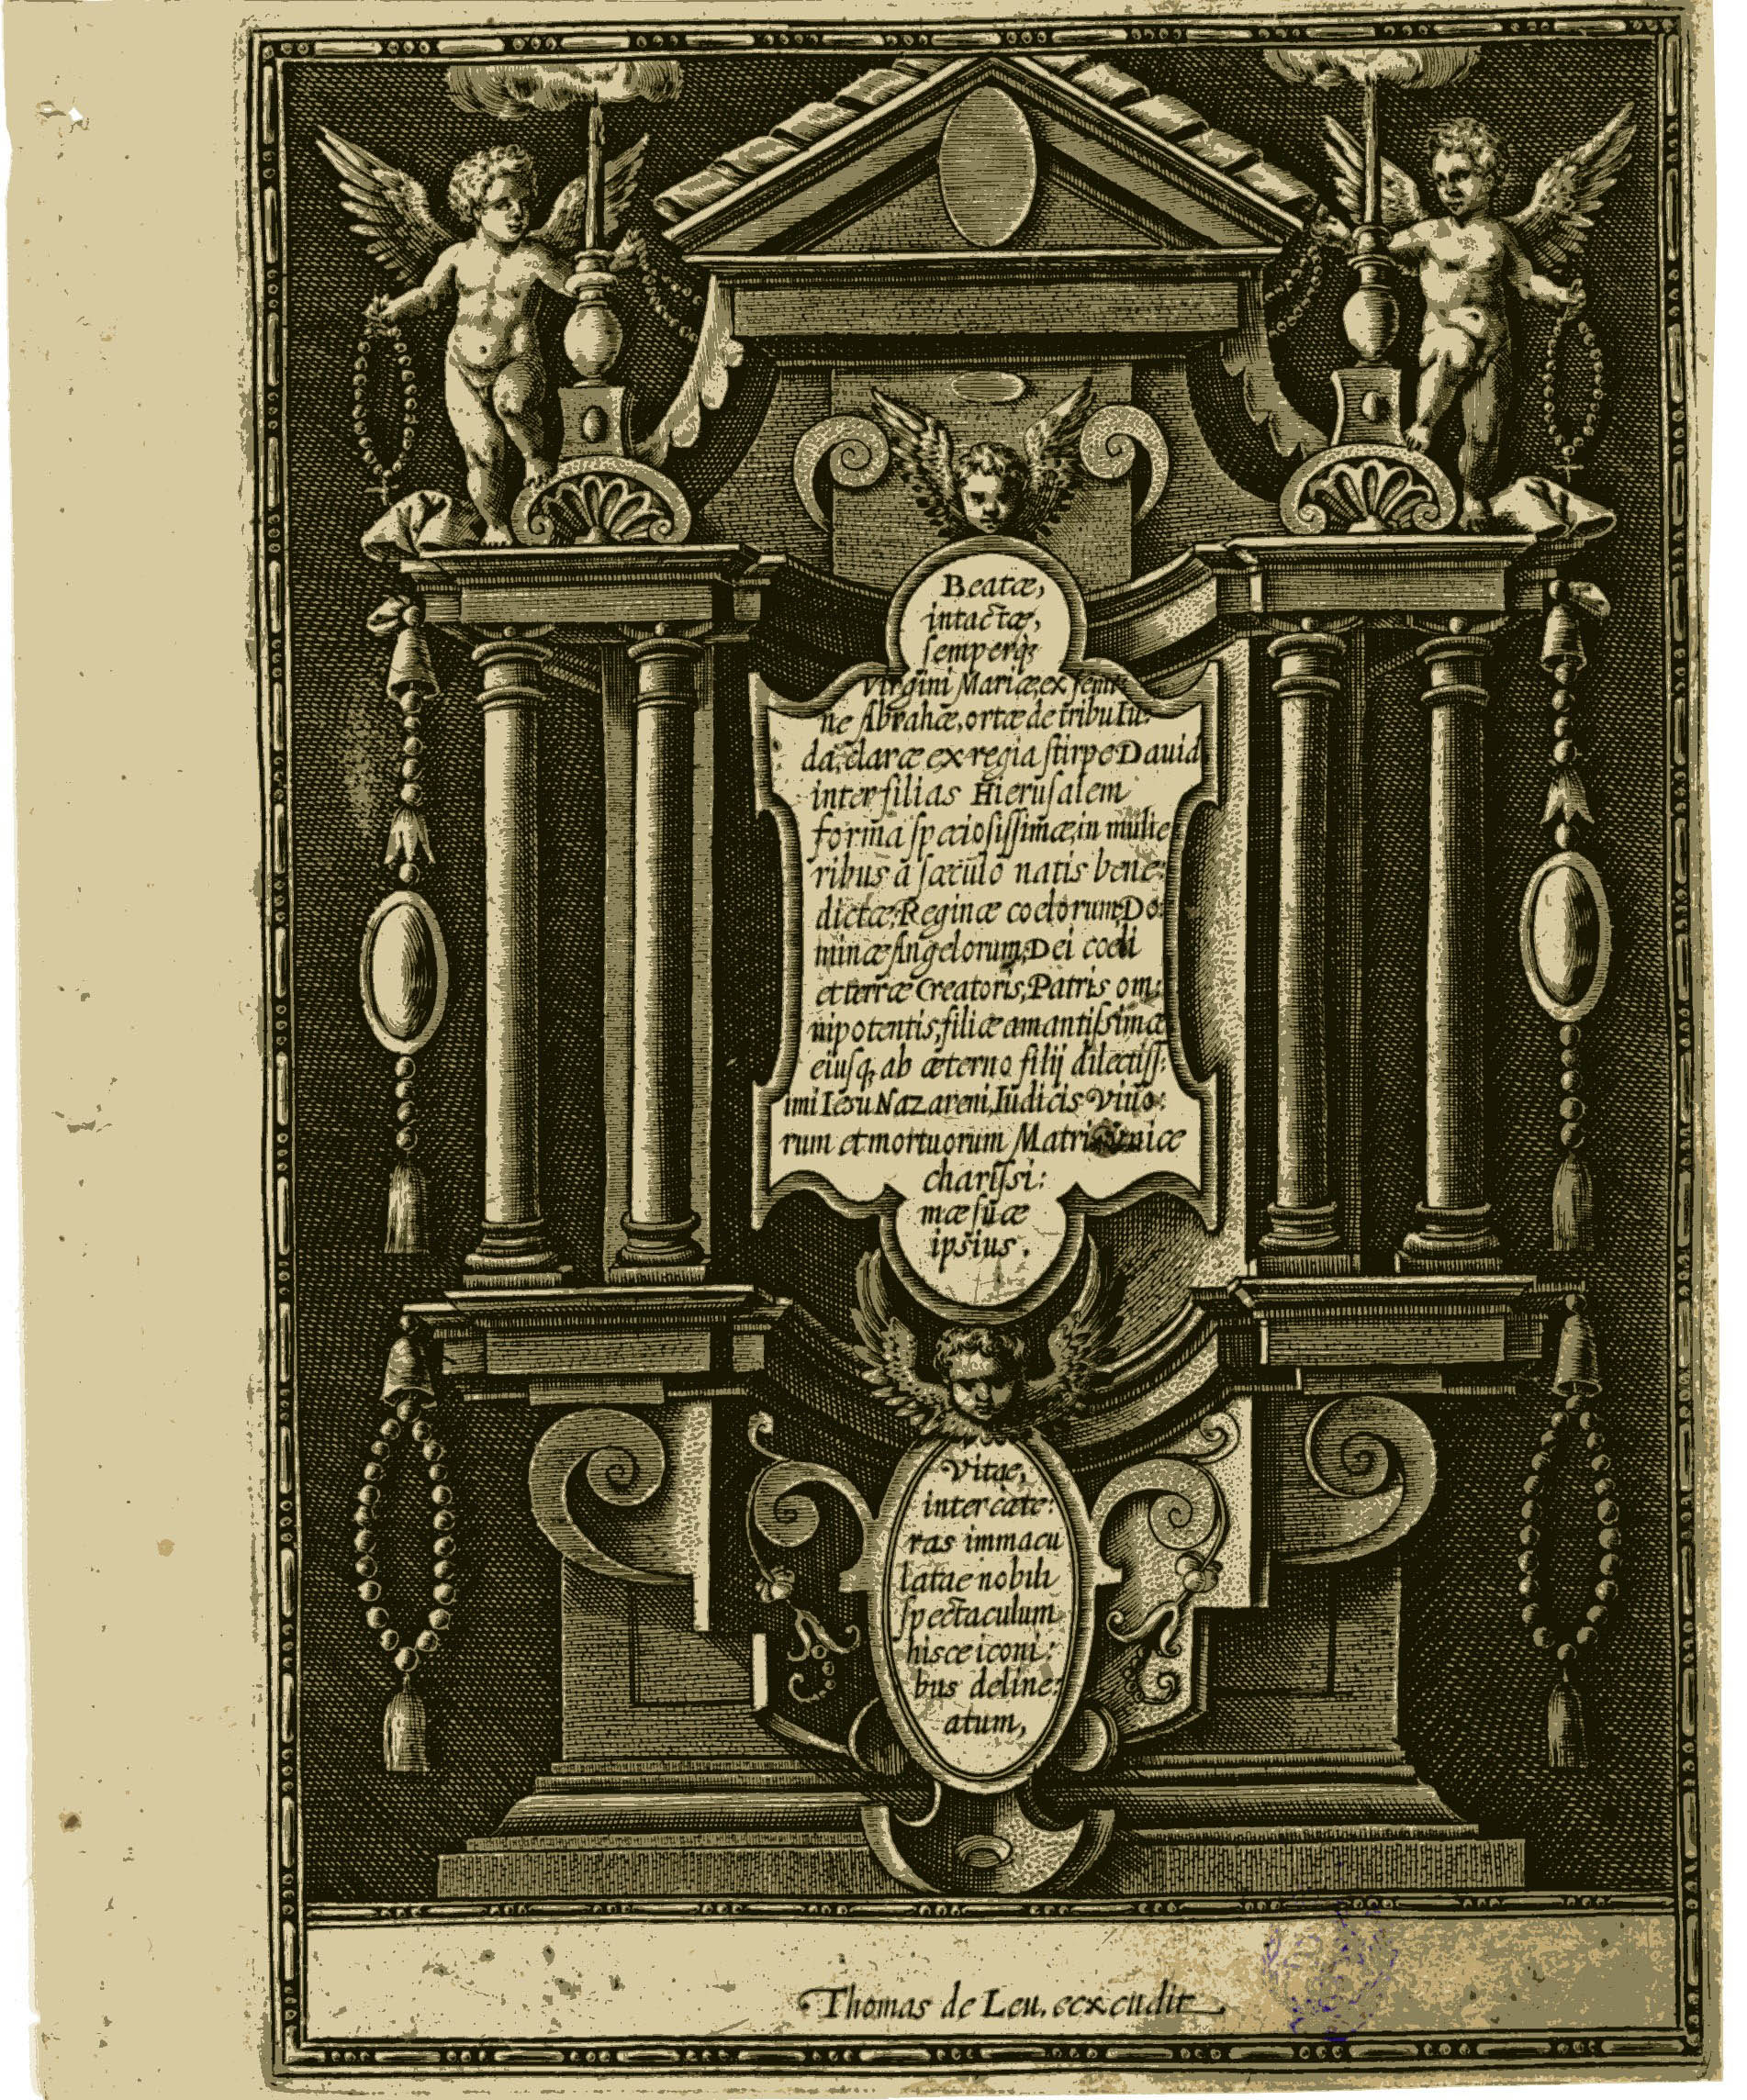 Beatæ,
intactæ,
ſemperq́;
Virgini Mariæ, ex ſemi:
ne Abrahæ, ortæ de tribu Iu:
da, claræ ex regia ſtirpe Dauid
inter filias Hieruſalem
forma ſpæcioſiſſimæ, in mulie
ribus a ſæculo natis bene:
dictæ, Reginæ coelorum, Do:
minæ Angelorum, Dei coeli
et terræ Creatoris, Patris om:
nipotentis, filiæ amantiſsimæ
eiuſq, ab æterno filij dilectiſſ:
imi Iesu Nazareni, Iudicis Viuo:
rum et mortuorum Matris vnicæ
chariſsi:
mæ ſuæ
ipsius.
Vitae,
inter cæte:
ras immacu
latae nobili
ſpectaculum
hisce iconi:
bus deline:
atum,
Thomas de Leu. ecxcudit